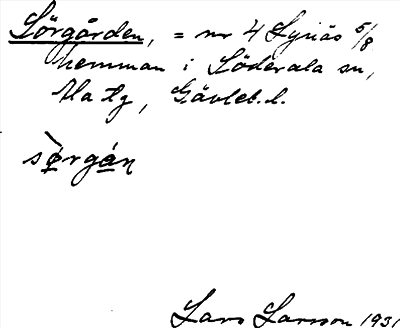 Sörgården, = nr 4 Lynäs 5/8
hemman i Söderala sn,
Ala tg, Gävleb. l.
sørgán
Lars Larsson 1931